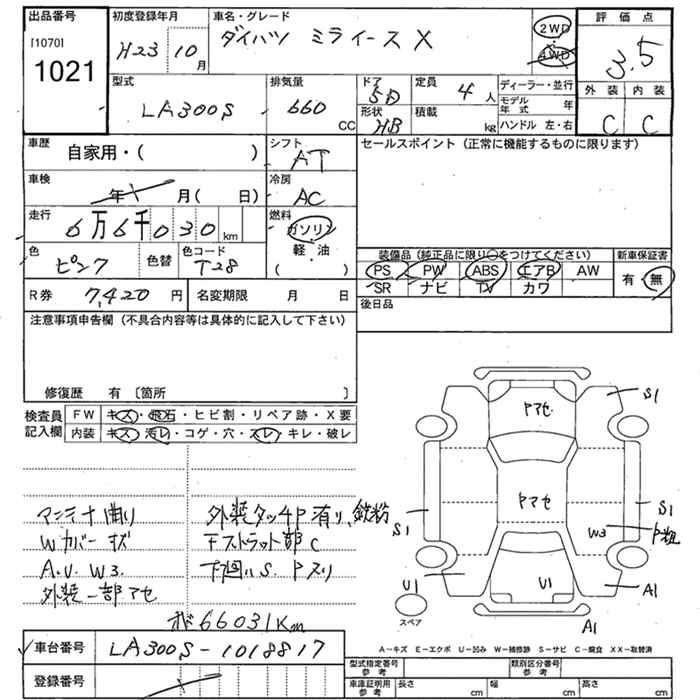 出品番号 初度登録年月 車名・グレード 評価点
[1070] 1021 H23 10月 ダイハツ ミライース X 2WD 4WD 3.5
型式 排気量 ドア 定員 ディーラー・並行 外装 内装
LA300S 660 CC 5D 4人 モデル年式 年 C C
形状 積載 ハンドル 左・右
HB kg
車歴 シフト セールスポイント (正常に機能するものに限ります)
自家用・( ) AT
車検 冷房
年 月( 日) AC
走行 燃料
6万6千030km ガソリン
色 色替 色コード 軽・油
ピンク T28 ( )
装備品 (純正品に限り○をつけてください) 新車保証書
PS PW ABS エアB AW 有・無
SR ナビ TV カワ
R券 7,420円 名変期限 月 日 後日品
注意事項申告欄 (不具合内容等は具体的に記入して下さい)
修復歴 有 〔箇所 〕
検査員記入欄 FW キズ・飛石・ヒビ割・リペア跡・X要
内装 キズ・汚レ・コゲ・穴・スレ・キレ・破レ
アンテナ曲り 外装タッチP有り、鉄粉
Wカバーキズ Fストラット部C
A.U.W3. 下廻りS.Pヌリ
外装一部アセ
66031Km
車台番号 LA300S-1018817
登録番号
Pアセ
S1
Pアセ
S1
S1
W3
P粗
U1
U1
A1
A1
スペア
A-キズ E-エクボ U-凹み W-補修跡 S-サビ C-腐食 XX-取替済
型式指定番号 参考 類別区分番号 参考
車庫証明用 参考 長さ cm 幅 cm 高さ cm